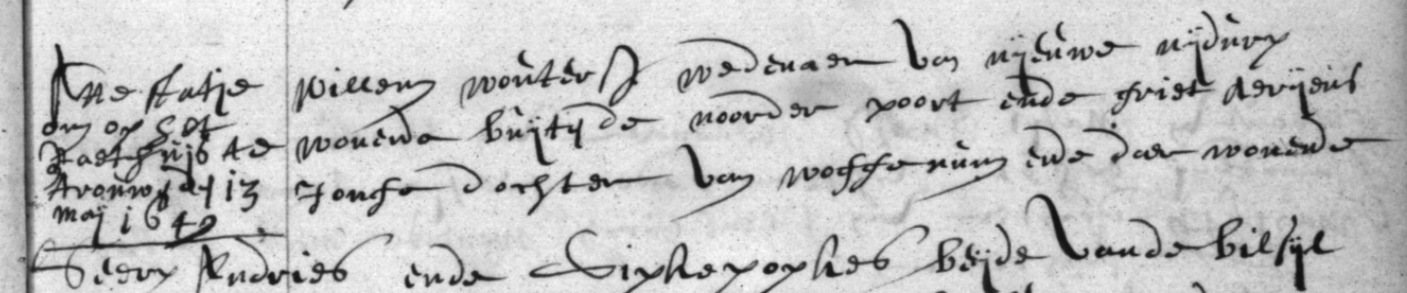 Attestatje
om op het
Raethuijs te
trouwen dej 13
Maij 1649
Willem Wouters wedenaer van nijeuwe nijdurp
wonende buijten de noorder poort ende Griet Aerijens
Jonge dochter van wofferum ende daer wonende
Andries ende beijde vande bilsijl